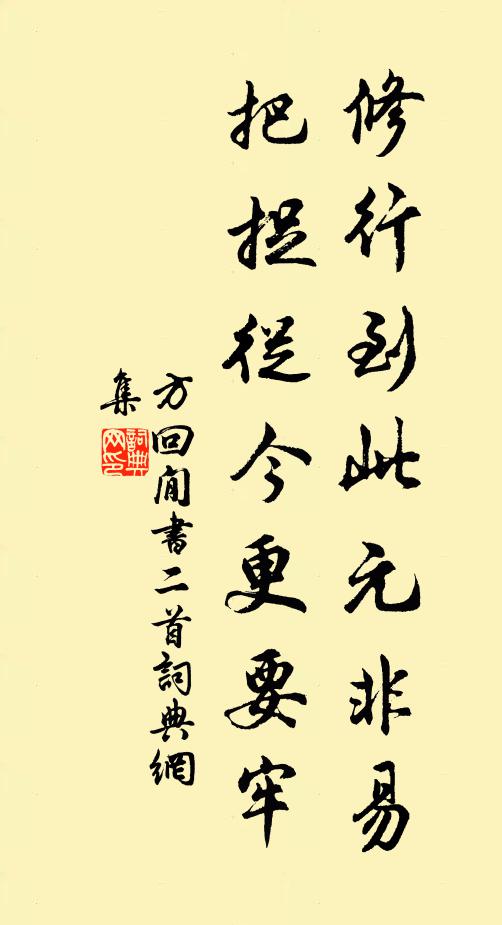 修行到此元非易
把捉從今更要牢
方回閒書二首詞典網
集
詞典
网印